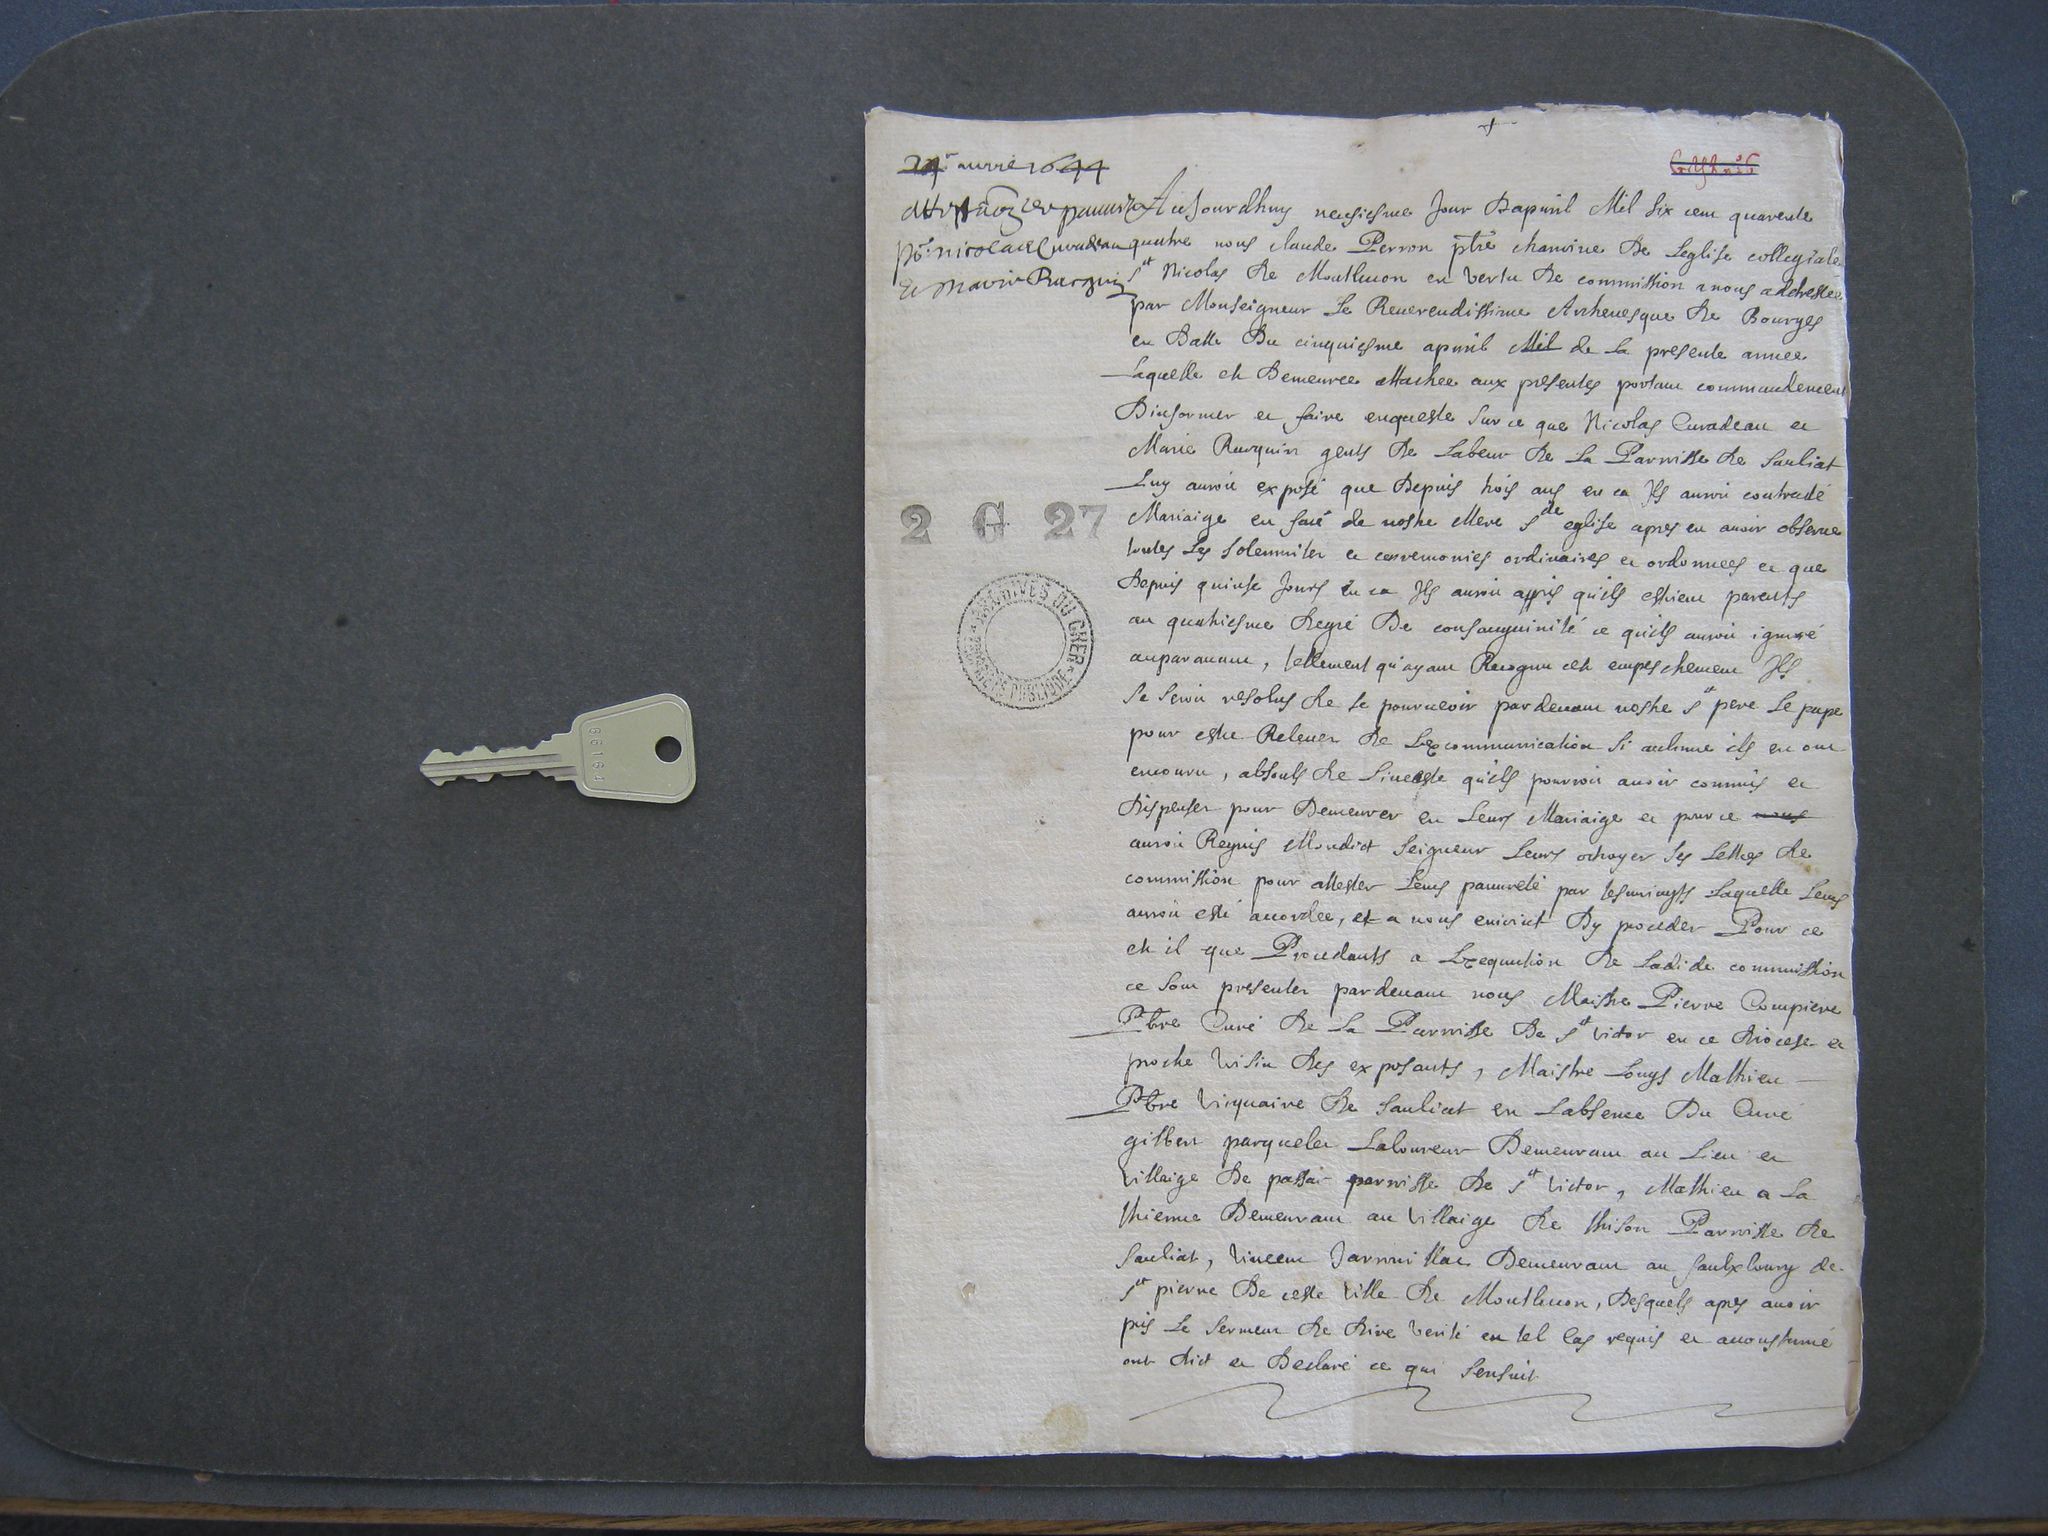 avril 1644
Aujourdhuy neufiesme Jour Dapvril Mil six cent quarente
quatre nous claude Perron ptre chanoine De Leglise collegiale
st Nicolas De Montlucon en vertu De commission a nous addressee
par Monseigneur Le Reverendissime Archevesque De Bourges
en Datte Du cinquiesme apvril Mil de La presente annee
Laquelle est Demeuree attachee aux presentes portant commandement
Dinformer et faire enqueste sur ce que Nicolas Curadeau et
Marie Racquin gents De Labeur De La Parroisse De sauliat
Luy auroit exposé que Depuis trois ans en ca Ils auroit contracté
Mariaige en face de nostre Mere ste eglise apres en avoir observe
toutes Les solemnitez et cerremonies ordinaires et ordonnees et que
Depuis quinse Jours en ca Ils auroit appris qu'ils estient parents
au quatriesme degré De consanguinité ce qu'ils auroit ignoré
auparavant, tellement qu'ayant Recognu cet empeschement Ils
se seroit resolus De se pourveoir pardevant nostre st pere Le pape
pour estre Relevez De Lexcommunication si aulcune ils en ont
encouru, absouls De Linceste qu'ils pourroit avoir commis et
Dispensez pour Demeurer en Leurs Mariaige et pour ce nous
auroit Requis Mondict seigneur Leurs octroyer ses Lettres De
commission pour attester Leurs pauvreté par tesmoings Laquelle Leurs
auroit esté accordee, et a nous enioint Dy proceder Pour ce
est il que Procedants a Lexequution De Ladide commission
ce sont presentez pardevant nous Maistre Pierre Compiere
Pbre Curé De La Parroisse De st victor en ce Diocese et
proche voisin Des exposants, Maistre Louys Mathieu
Pbre vicquaire De sauliat en Labsence Du Curé
gilbert parquelet Laboureur Demeurant au Lieu et
villaige De passat parroisse De st victor, Mathieu a La
thienne Demeurant au villaige De thison Parroisse De
sauliat, vincent Demeurant au faulxbourg de
st pierre De ceste ville De Montlucon, Desquels apres avoir
pris Le serment De Dire verité en tel Cas requis et accoustumé
ont dict et Declaré ce qui sensuit
attestaõn de pauvreté
pr. nicolas Curadeau
et Marie Racquin
2 G 27
ARCHIVES DU CHER
66164